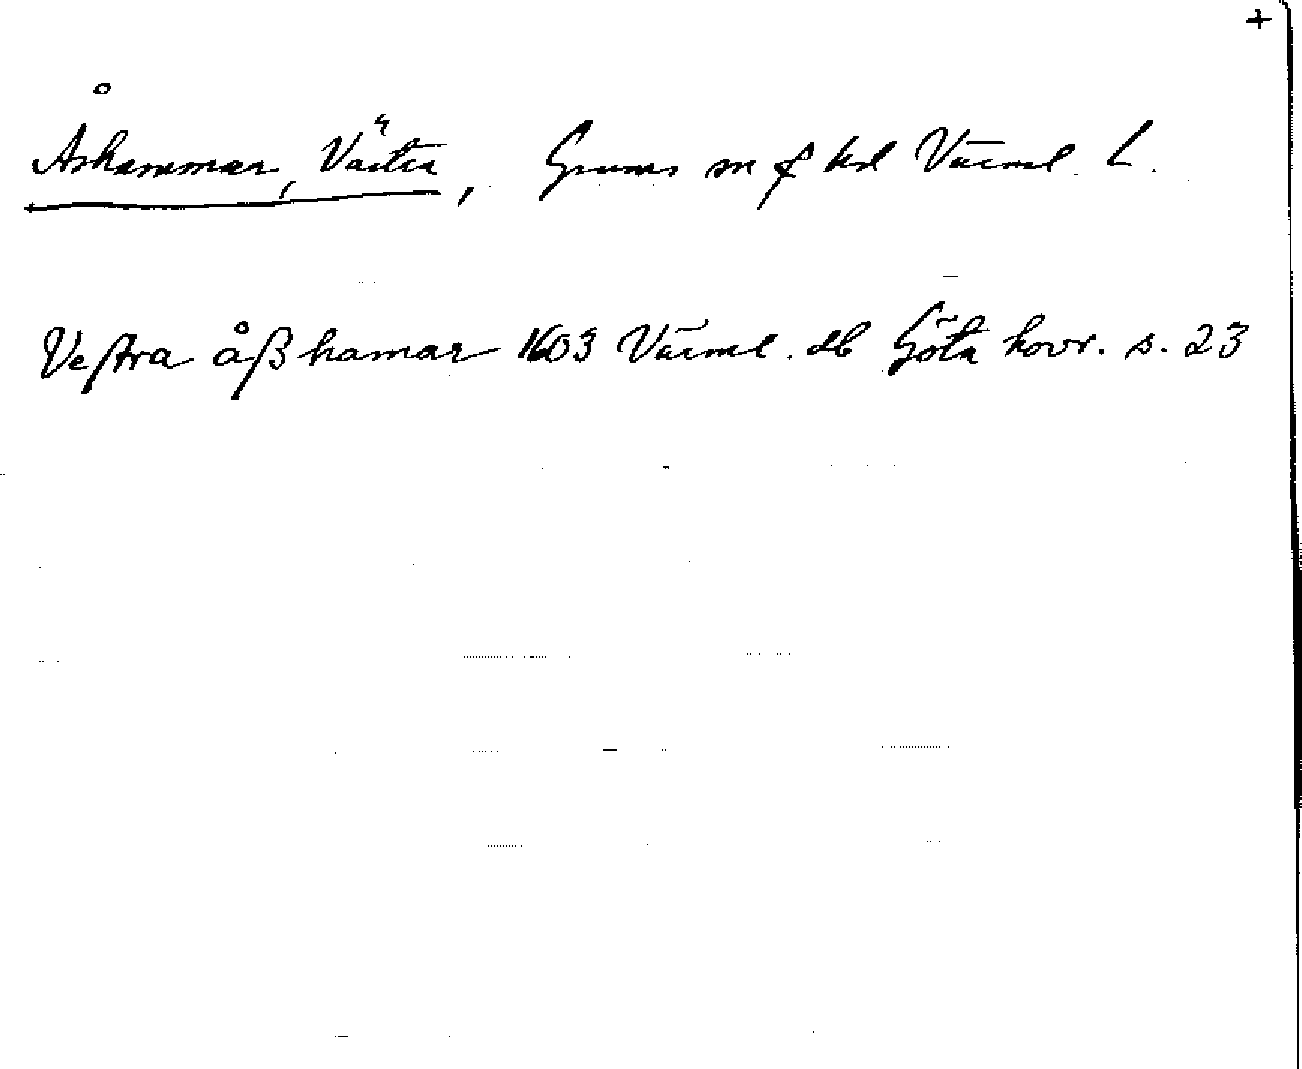 +
Åshammar, Västra, Grums sn o hd Värml. l.
Veſtra åßhamar 1603 Värml. db Göta hovr. s. 23